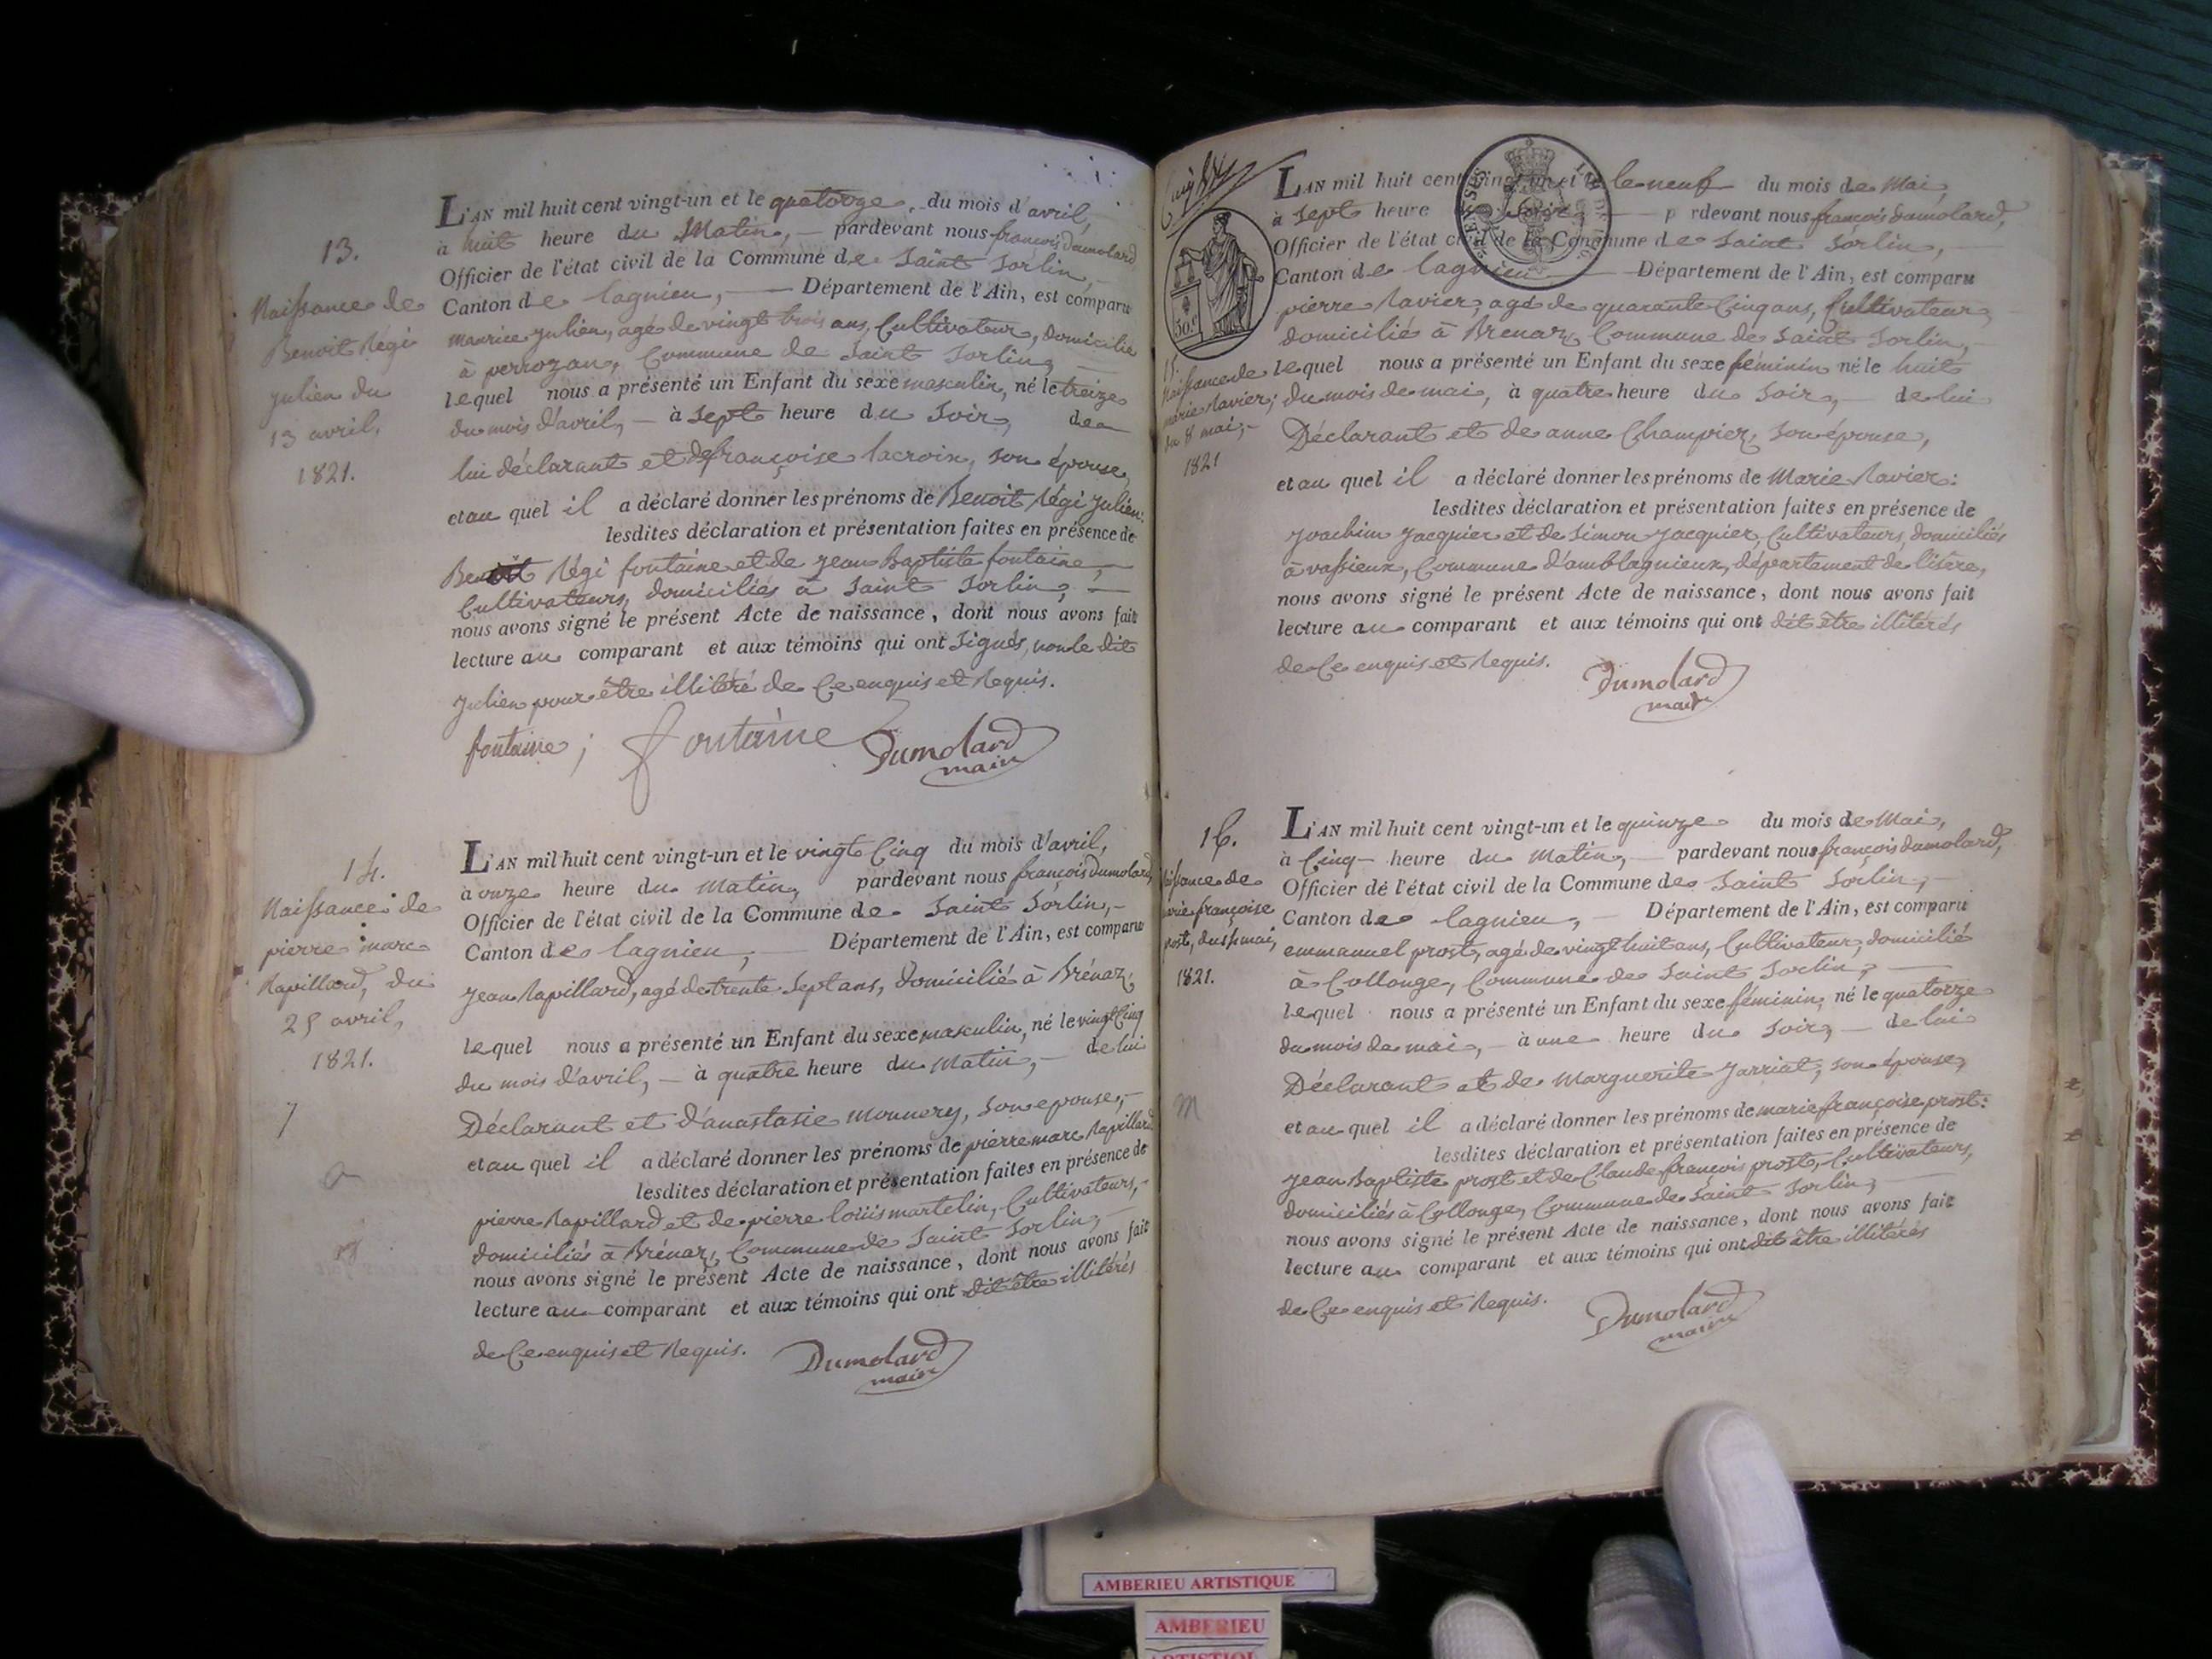 13.
Naissance de
Benoit Régi
Julien du
13 avril,
1821.
L'AN mil huit cent vingt-un et le quatorze, du mois d'avril,
à huit heure du Matin, — pardevant nous françois dumolard
Officier de l'état civil de la Commune de Saint Sorlin,
Canton de lagnieu, — Département de l'Ain, est comparu
maurice julien, agé de vingt trois ans, Cultivateur, domicilié
à perrozan, Commune de Saint Sorlin,
lequel nous a présenté un Enfant du sexe masculin, né le treize
du mois d'avril, — à sept heure du Soir, de
lui déclarant et de françoise lacroix, son épouse,
et au quel il a déclaré donner les prénoms de Benoit Régi Julien:
lesdites déclaration et présentation faites en présence de
Benoit Régi fontaine et de jean Baptiste fontaine,
Cultivateurs, domiciliés à Saint Sorlin, —
nous avons signé le présent Acte de naissance, dont nous avons fait
lecture au comparant et aux témoins qui ont Signés, non le dit
Julien pour être illitéré de Ce enquis et Requis.
fontaine; fontaine Dumolard
maire
14.
Naissance de
pierre marc
Rapillard, du
25 avril,
1821.
7
L'AN mil huit cent vingt-un et le vingt Cinq du mois d'avril,
à onze heure du Matin, pardevant nous françois dumolard,
Officier de l'état civil de la Commune de Saint Sorlin,—
Canton de lagnieu, — Département de l'Ain, est comparu
jean Rapillard, agé de trente Sept ans, domicilié à Brénaz,
lequel nous a présenté un Enfant du sexe masculin, né le vingt Cinq
du mois d'avril, — à quatre heure du Matin, — de lui
Déclarant et d'anastasie monnery, son epouse,—
et au quel il a déclaré donner les prénoms de pierre marc Rapillard
lesdites déclaration et présentation faites en présence de
pierre Rapillard et de pierre loüis martelin, Cultivateurs,
domiciliés à Brénaz, Commune de Saint Sorlin, —
nous avons signé le présent Acte de naissance, dont nous avons fait
lecture au comparant et aux témoins qui ont dit être illitérés
de Ce enquis et Requis. Dumolard
maire
30c
15.
Naissance de
marie Ravier,
du 8 mai,—
1821
L'AN mil huit cent vingt-un et le neuf du mois de Mai
à Sept heure du Soir — pardevant nous françois dumolard,
Officier de l'état civil de la Commune de Saint Sorlin,—
Canton de lagnieu — Département de l'Ain, est comparu
pierre Ravier, agé de quarante Cinq ans, Cultivateur,
domicilié à Brenaz, Commune de Saint Sorlin,—
lequel nous a présenté un Enfant du sexe féminin né le huit
du mois de mai, à quatre heure du Soir, — de lui
Déclarant et de anne Champier, Son épouse,
et au quel il a déclaré donner les prénoms de Marie Ravier:
lesdites déclaration et présentation faites en présence de
Joachim Jacquier et de Simon Jacquier, Cultivateurs, domiciliés
à vassieux, Commune d'amblagnieux, département de lisère,
nous avons signé le présent Acte de naissance, dont nous avons fait
lecture au comparant et aux témoins qui ont dit être illitérés
de Ce enquis et Requis. Dumolard
maire
16.
Naissance de
marie françoise
prost, du 14 mai,
1821.
M
L'AN mil huit cent vingt-un et le quinze du mois de Mai,
à Cinq — heure du Matin, — pardevant nous françois dumolard,
Officier de l'état civil de la Commune de Saint Sorlin,—
Canton de lagnieu, — Département de l'Ain, est comparu
emmanuel prost, agé de vingt huit ans, Cultivateur, domicilié
à Collonge, Commune de Saint Sorlin, —
lequel nous a présenté un Enfant du sexe féminin, né le quatorze
du mois de mai, — à une heure du Soir, — de lui
Déclarant et de Marguerite Jarriat, son épouse,
et au quel il a déclaré donner les prénoms de marie françoise prost:
lesdites déclaration et présentation faites en présence de
jean Baptiste prost et de Claude françois prost, Cultivateurs,
domiciliés à Collonge, Commune de Saint Sorlin,
nous avons signé le présent Acte de naissance, dont nous avons fait
lecture au comparant et aux témoins qui ont dit être illitérés
de Ce enquis et Requis. Dumolard
maire
AMBERIEU ARTISTIQUE
AMBERIEU
ARTISTIQUE